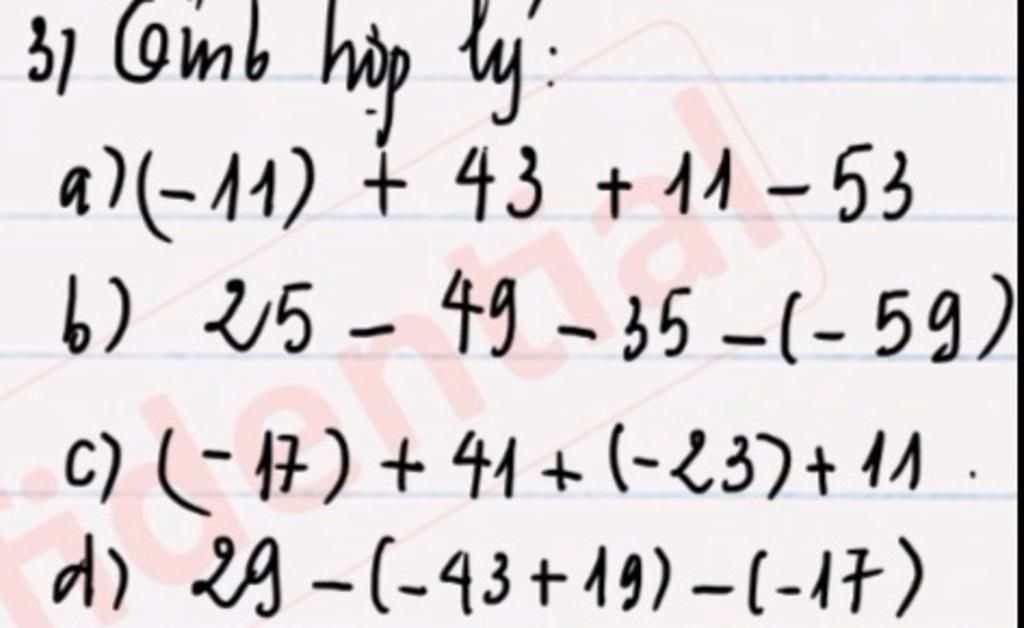 3) Tính hợp lý:
a) (-11) + 43 + 11 - 53
b) 25 - 49 - 35 - (- 59)
c) (-17) + 41 + (-23) + 11 .
d) 29 - (-43 + 19) - (-17)
fidential